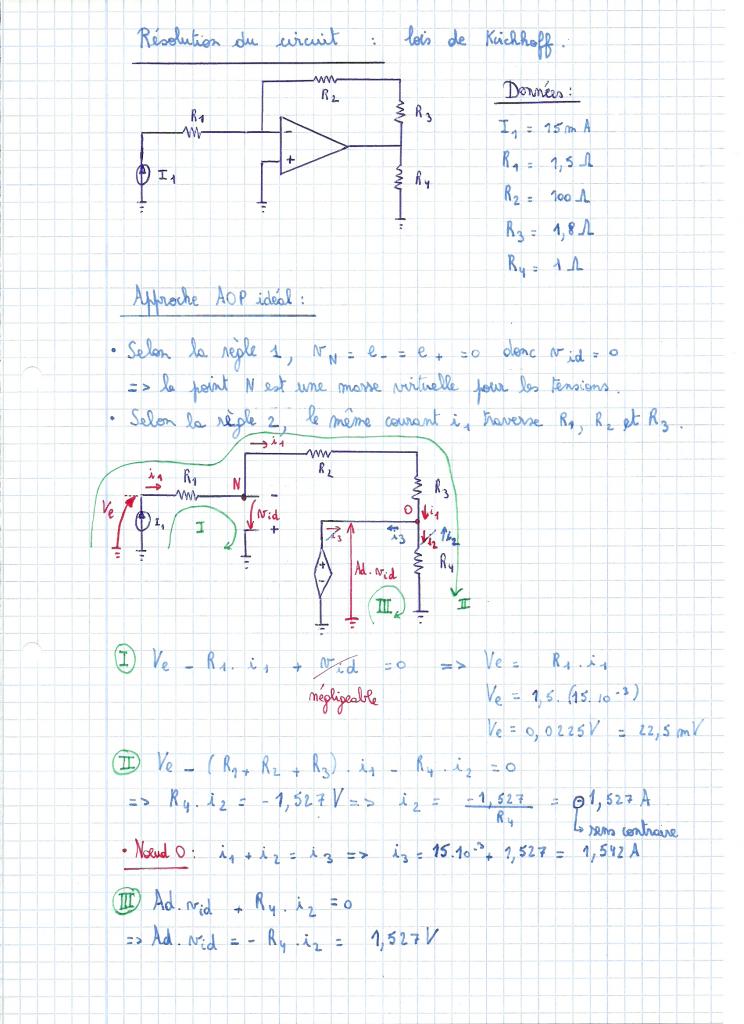 Résolution du circuit : lois de Kirchhoff.
R2
Données :
R1
R3
I1 = 15 mA
-
+
I1
R4
R1 = 1,5 Ω
R2 = 100 Ω
R3 = 1,8 Ω
R4 = 1 Ω
Approche AOP idéal :
• Selon la règle 1, vN = e- = e+ = 0 donc vid = 0
=> le point N est une masse virtuelle pour les tensions.
• Selon la règle 2, le même courant i1 traverse R1, R2 et R3.
i1
R2
i1 R1 N -
R3
Ve
I1
I
vid
+
O i1
i3
i3
i2 i2
+
-
Ad.vid
R4
III
II
I Ve - R1.i1 + vid = 0 => Ve = R1.i1
négligeable
Ve = 1,5.(15.10⁻³)
Ve = 0,0225V = 22,5 mV
II Ve - (R1 + R2 + R3).i1 - R4.i2 = 0
=> R4.i2 = -1,527 V => i2 = -1,527 / R4 = -1,527 A
sens contraire
• Nœud O : i1 + i2 = i3 => i3 = 15.10⁻³ + 1,527 = 1,542 A
III Ad.vid + R4.i2 = 0
=> Ad.vid = - R4.i2 = 1,527 V